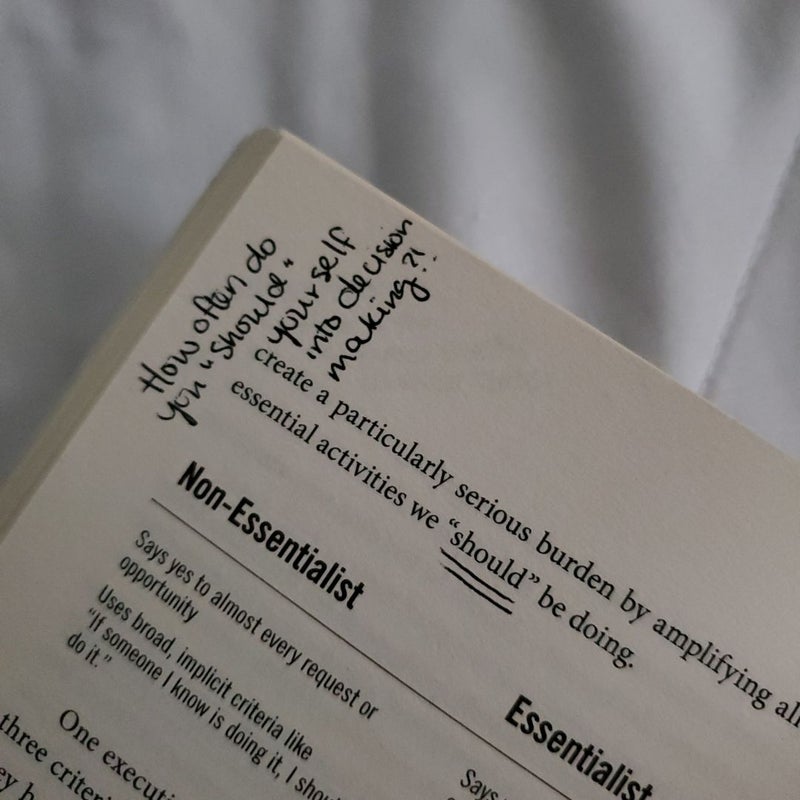 How often do
you "should"
yourself
into decision
making?!
create a particularly serious burden by amplifying all
essential activities we "should" be doing.
Non-Essentialist
Says yes to almost every request or
opportunity
Uses broad, implicit criteria like
"If someone I know is doing it, I
do it."
Essentialist
Says
One
three